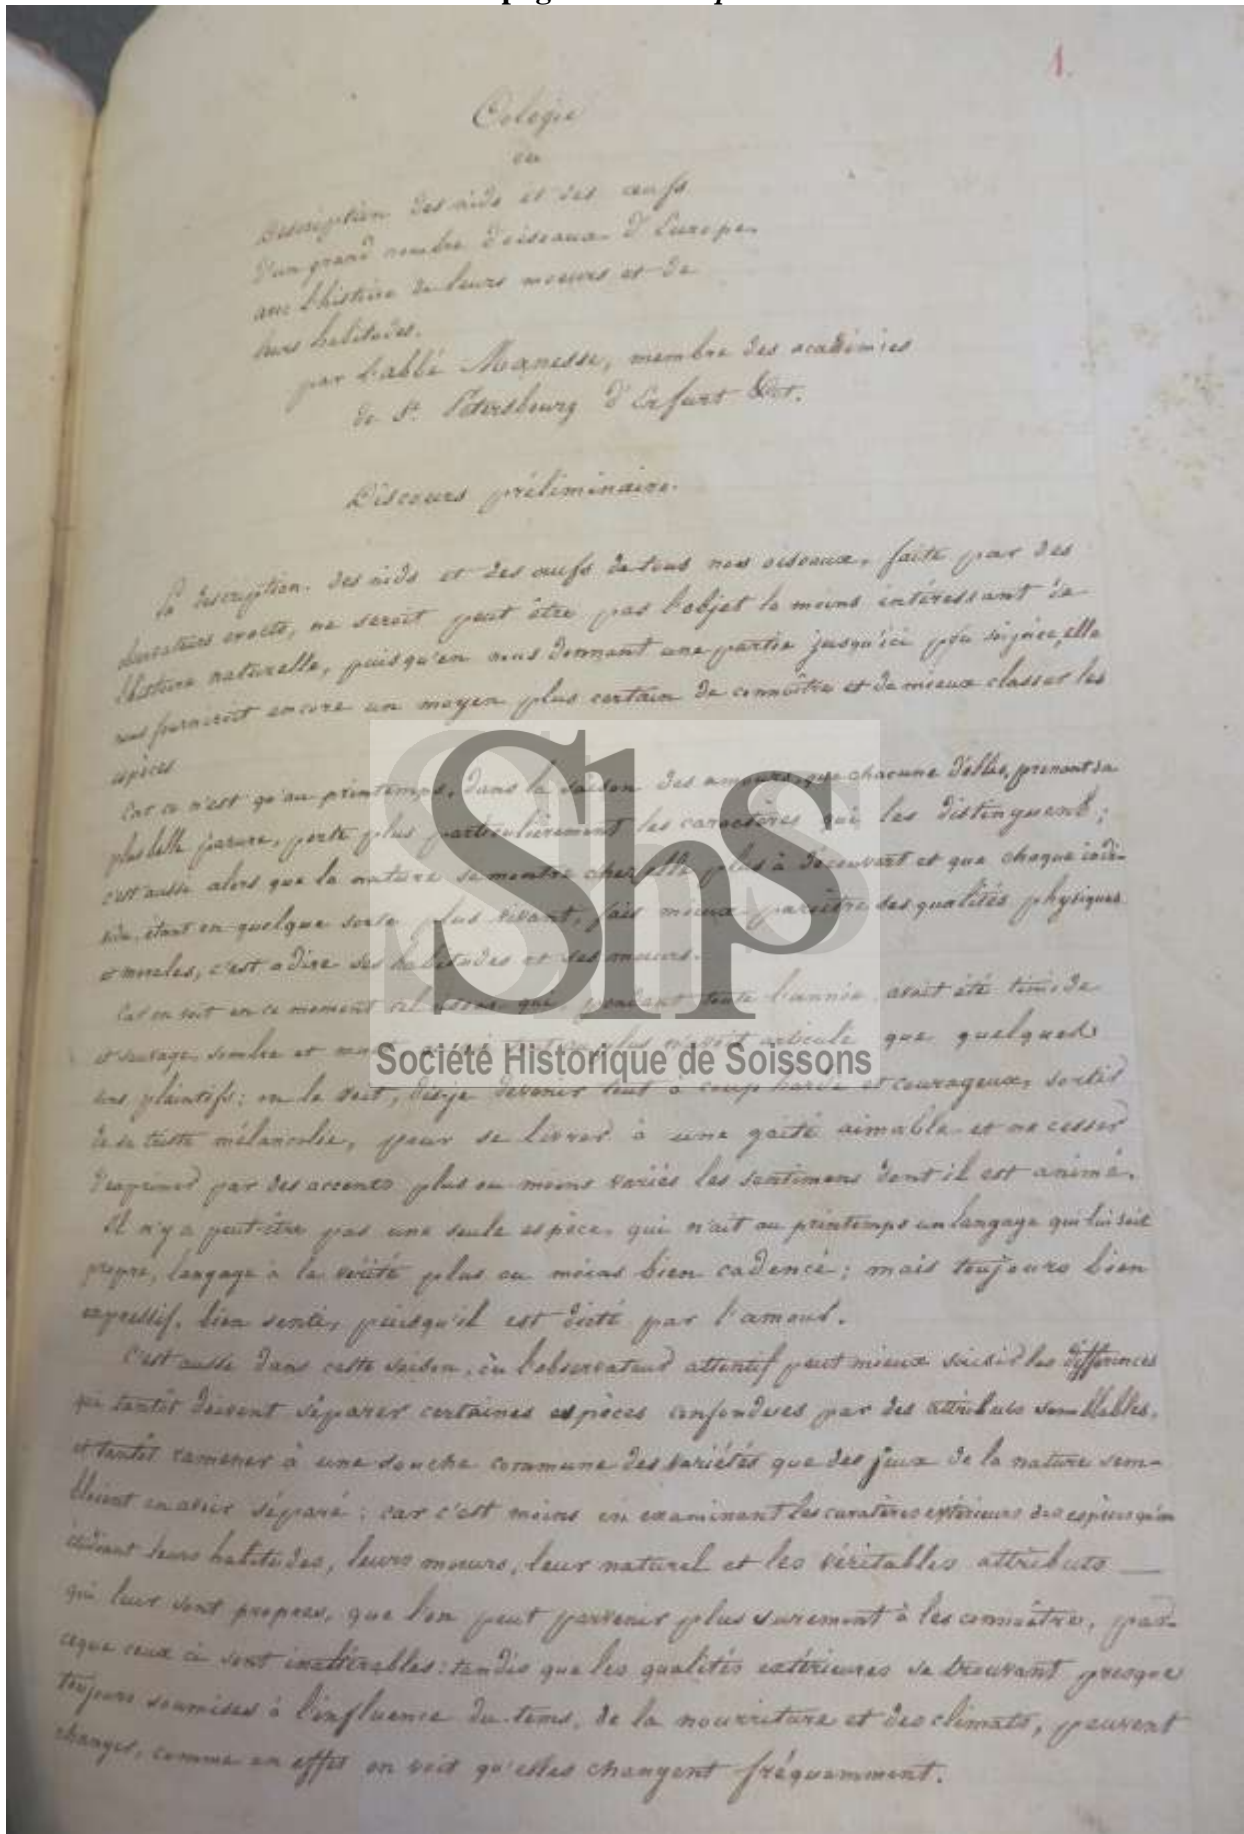 1.
Oologie
ou
Description des nids et des œufs
d'un grand nombre d'oiseaux d'Europe
avec l'histoire de leurs moeurs et de
leurs habitudes.
par l'abbé Manesse, membre des académies
de St. Pétersbourg d'Erfurt &ct.
Discours préliminaire.
La description des nids et des œufs de tous nos oiseaux, faite par des
observateurs exacts, ne seroit peut être pas l'objet le moins intéressant de
l'histoire naturelle, puisqu'en nous donnant une partie jusqu'ici peu soignée, elle
nous fourniroit encore un moyen plus certain de connoître et de mieux classer les
espèces.
Car ce n'est qu'au printemps, dans la saison des amours, que chacune d'elles, prenant sa
plus belle parure, porte plus particulièrement les caractères qui les distinguent;
c'est aussi alors que la nature se montre chez elle plus à découvert et que chaque indi-
vidu, étant en quelque sorte plus vivant, fais mieux paroître ses qualités physiques
et morales, c'est a dire ses habitudes et ses mœurs.
Car on voit en ce moment tel oiseau qui pendant toute l'année avoit été timide
et sauvage, sombre et plus n'avoit articulé que quelques
sons plaintifs: on le voit, disje devenir tout à coup hardi et courageux, sortir
de sa triste mélancolie, pour se livrer à une gaité aimable et ne cesser
d'exprimer par des accents plus ou moins variés les sentimens dont il est animé.
Il n'y a peut-être pas une seule espèce, qui n'ait au printemps un langage qui lui soit
propre, langage à la vérité plus ou moins bien cadencé; mais toujours bien
expressif, bien senti, puisqu'il est dicté par l'amour.
C'est aussi dans cette saison, où l'observateur attentif peut mieux saisir les différences
qui tantôt doivent séparer certaines espèces confondues par des attributs semblables,
et tantôt ramener à une souche commune des variétés que des jeux de la nature sem-
bloient en avoir séparé: car c'est moins en examinant les caratères extérieurs des espèces qu'en
étudiant leurs habitudes, leurs mœurs, leur naturel et les véritables attributs
qui leur sont propres, que l'on peut parvenir plus surement à les connoître, par-
ceque ceux ci sont inaltérables: tandis que les qualités extérieures se trouvant presque
toujours soumises à l'influence du tems, de la nourriture et des climats, peuvent
changer, comme en effet on voit qu'elles changent fréquemment.
Shs
Société Historique de Soissons